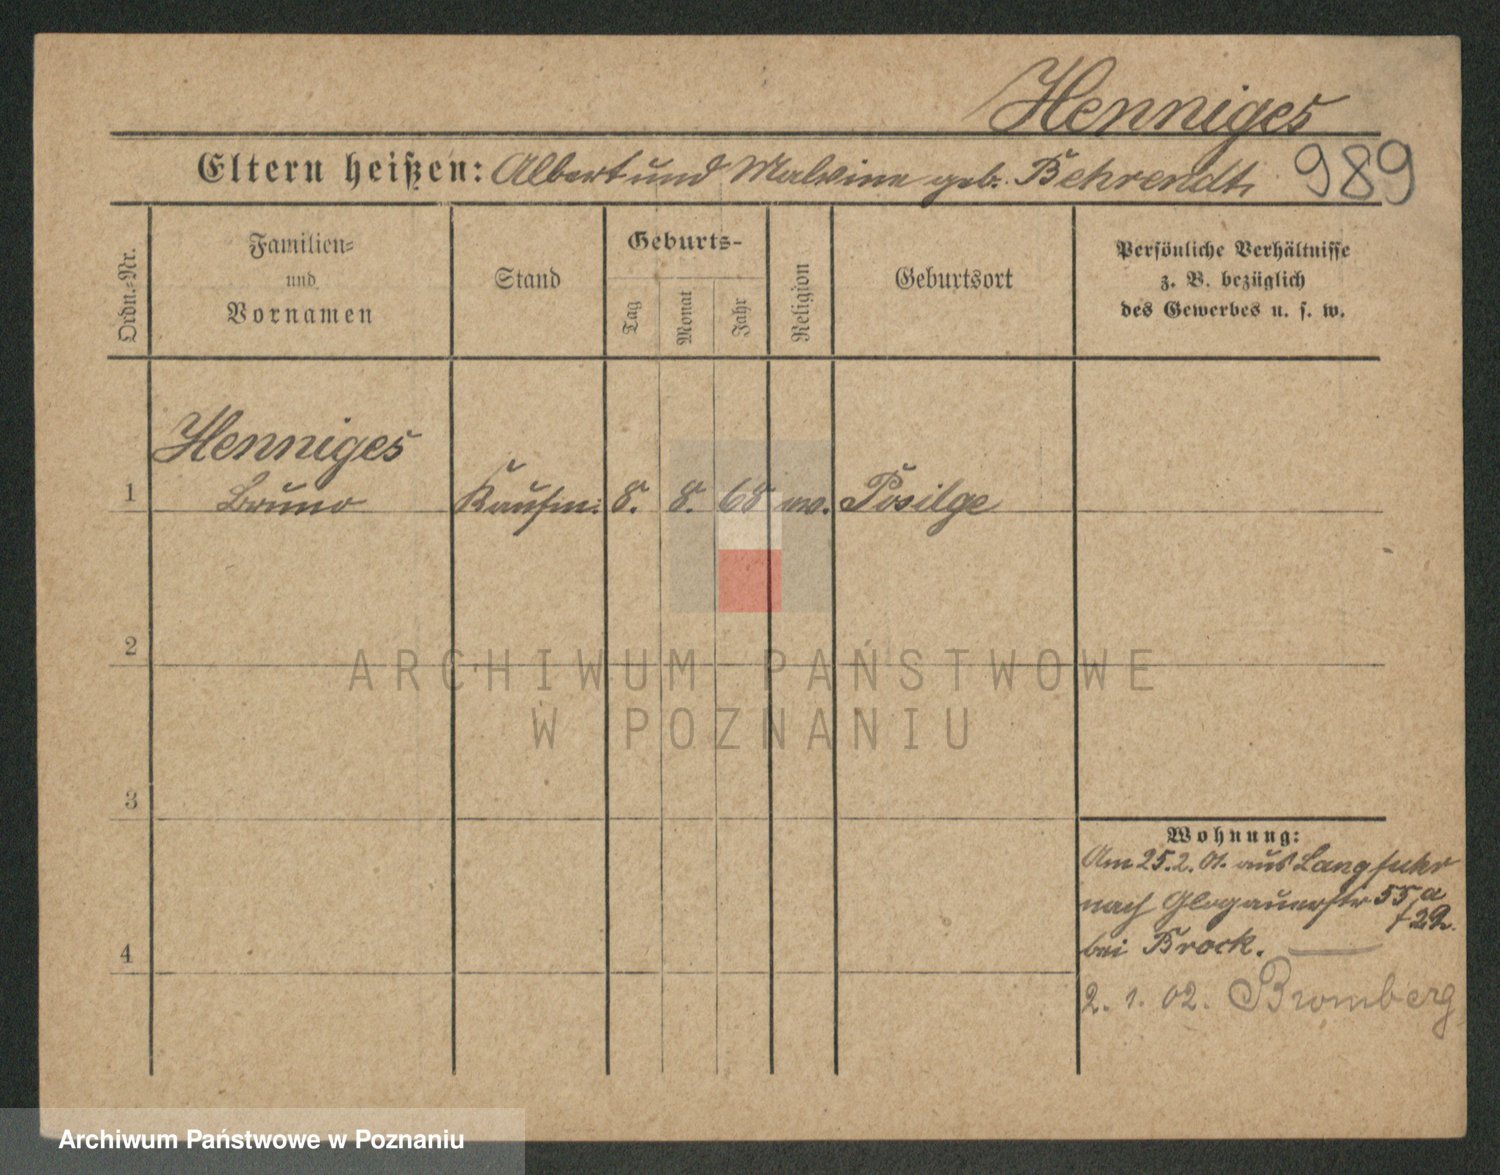 Henniges
Eltern heißen: Albert und Malvine geb. Behrendt,
989
Ordn.-Nr.
Familien-
und
Vornamen
Stand
Geburts-
Tag
Monat
Jahr
Religion
Geburtsort
Persönliche Verhältnisse
z. B. bezüglich
des Gewerbes u. s. w.
Henniges
1 Bruno Kaufm: 8. 8. 68 Posilge
2
ARCHIWUM PAŃSTWOWE
W POZNANIU
3
Wohnung:
Am 25.2.01. aus Langfuhr
nach Glogauerstr 55a
bei Brock.
4
2. 1. 02. Bromberg
Archiwum Państwowe w Poznaniu